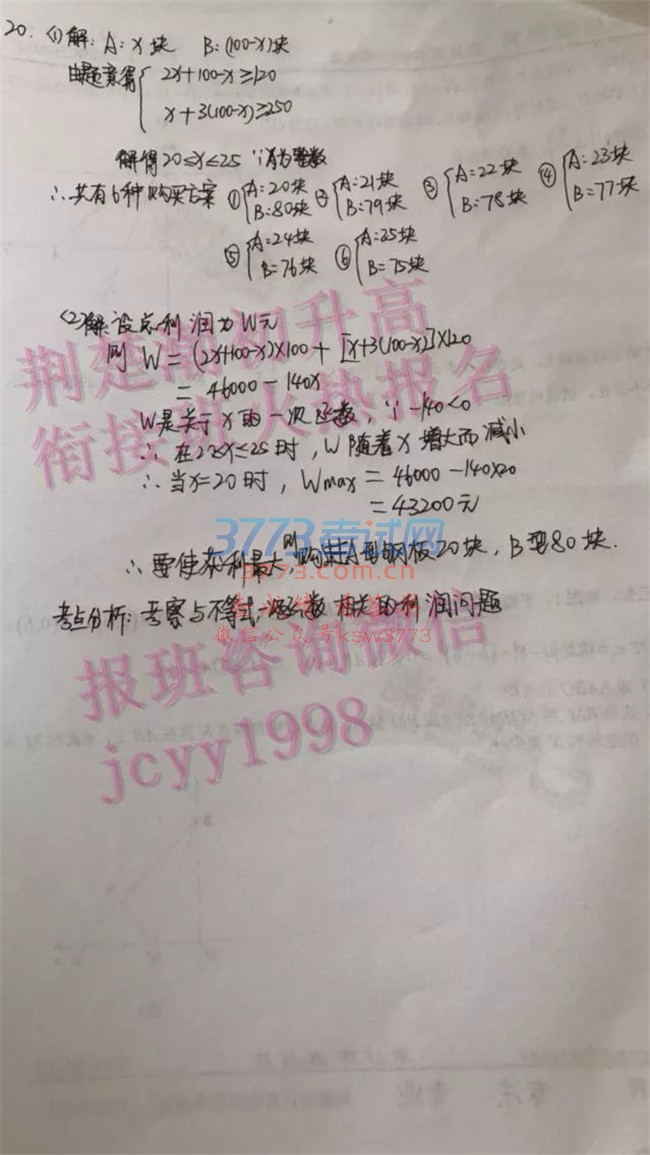 20. (1)解: A: x块 B: (100-x)块
由题意得 { 2x+100-x≥120
x+3(100-x)≥250
解得 20≤x≤25 ∵x为整数
∴共有6种购买方案 ① {A=20块 B=80块 ② {A=21块 B=79块 ③ {A=22块 B=78块 ④ {A=23块 B=77块
⑤ {A=24块 B=76块 ⑥ {A=25块 B=75块
(2)解:设总利润为W元
则 W = (2x+100-x)×100 + [x+3(100-x)]×120
= 46000-140x
W是关于x的一次函数, ∵ -140<0
∴ 在20≤x≤25时, W随着x增大而减小
∴ 当x=20时, Wmax = 46000-140×20
= 43200元
∴ 要使获利最大,则购买A型钢板20块, B型80块.
考点分析: 考察与不等式, 函数相关的利润问题
荆楚 初升高
衔接班火热报名
3773考试网
.com.cn
微信公众号ksw3773
报班咨询微信
jcyy1998